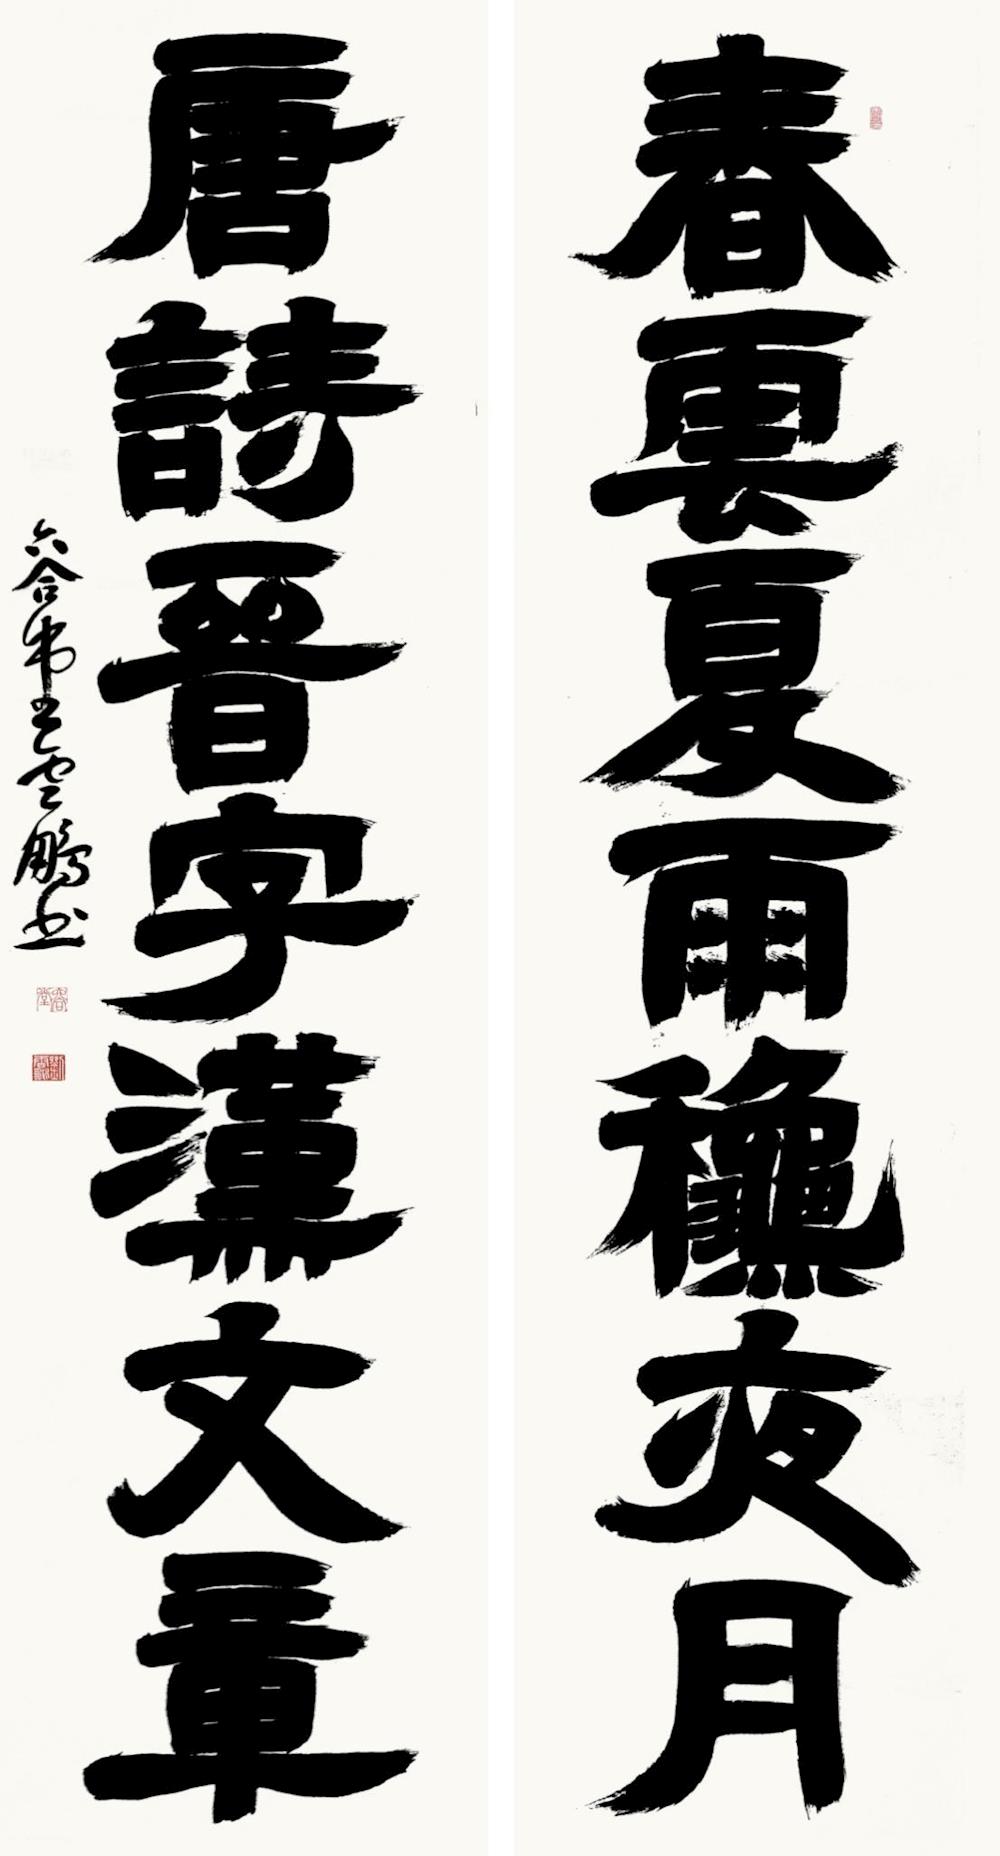 春雲夏雨龝夜月
唐詩晉字漢文章
六合布衣雲鵬书